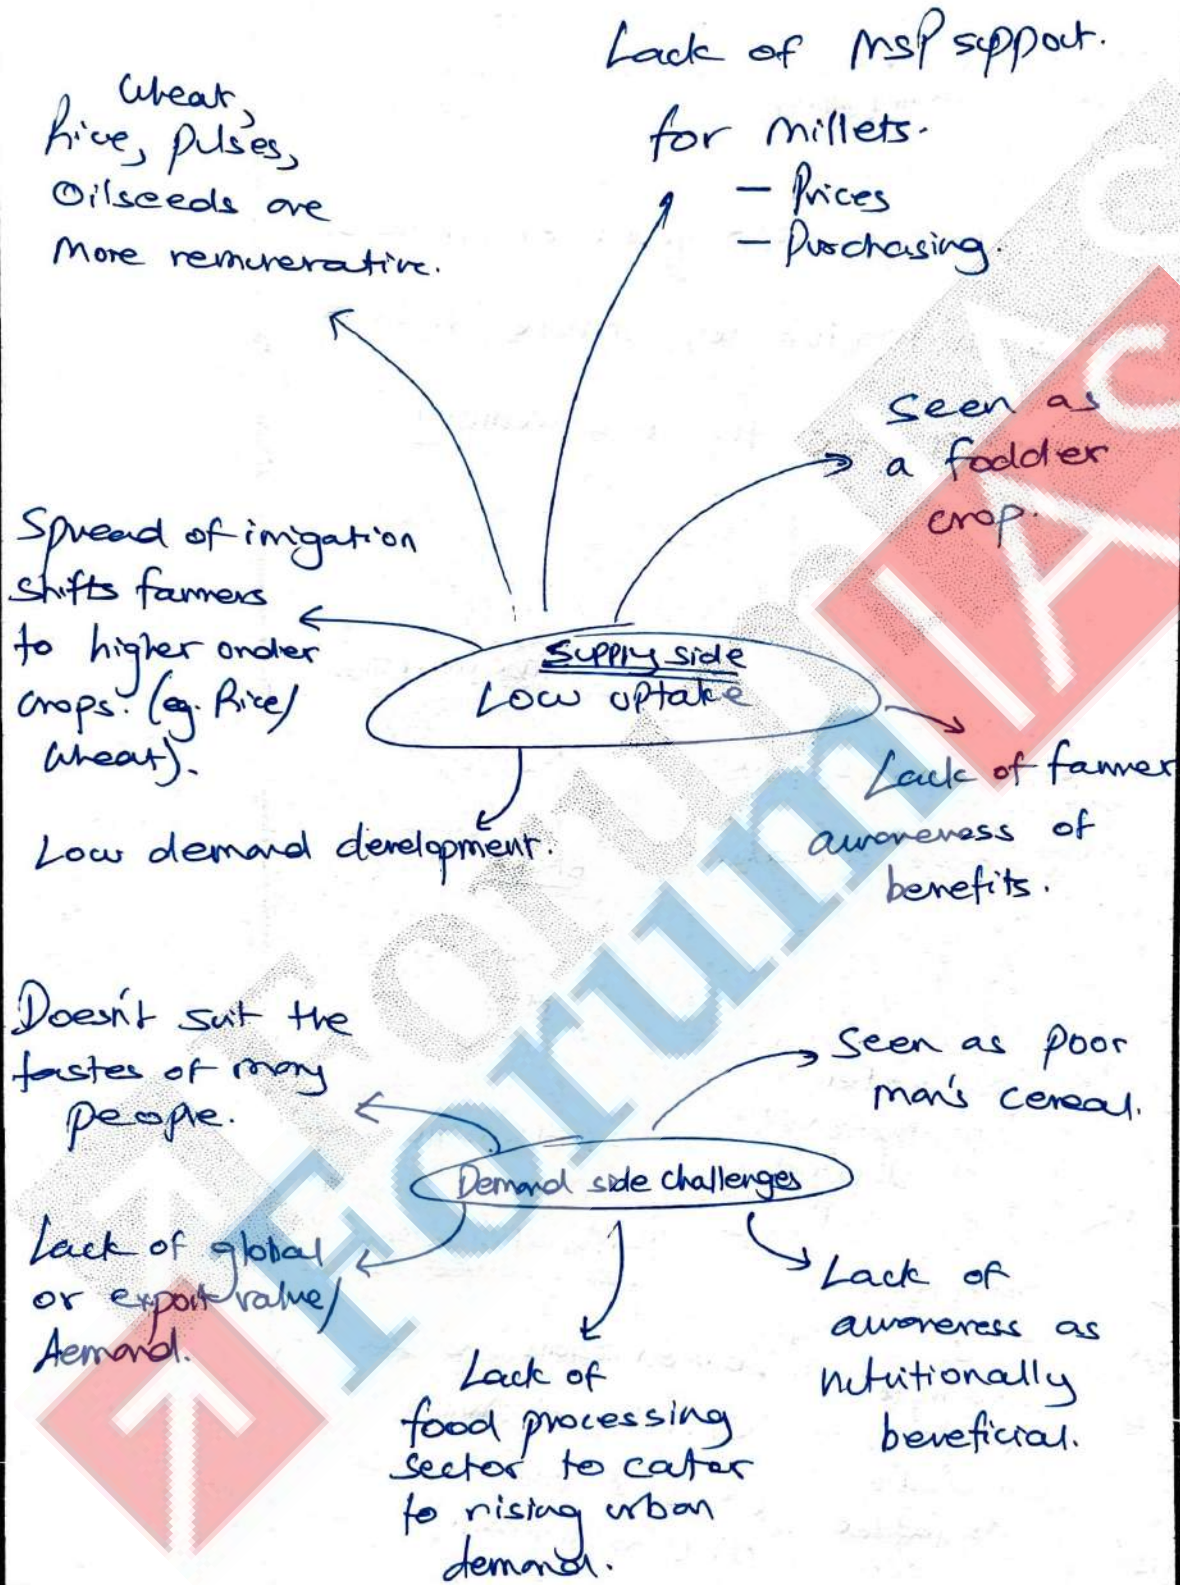 Lack of MSP support.
for millets.
- Prices
- Purchasing.
Wheat,
Rice, Pulses,
Oilseeds are
More remunerative.
Seen as
a fodder
crop.
Spread of irrigation
shifts farmers
to higher order
crops. (eg. Rice/
Wheat).
Supply side
Low uptake
Lack of farmer
awareness of
benefits.
Low demand development.
Doesn't suit the
tastes of many
people.
Seen as poor
man's cereal.
Demand side challenges
Lack of global
or export value/
demand.
Lack of
awareness as
nutritionally
beneficial.
Lack of
food processing
sector to cater
to rising urban
demand.
Forum IAS